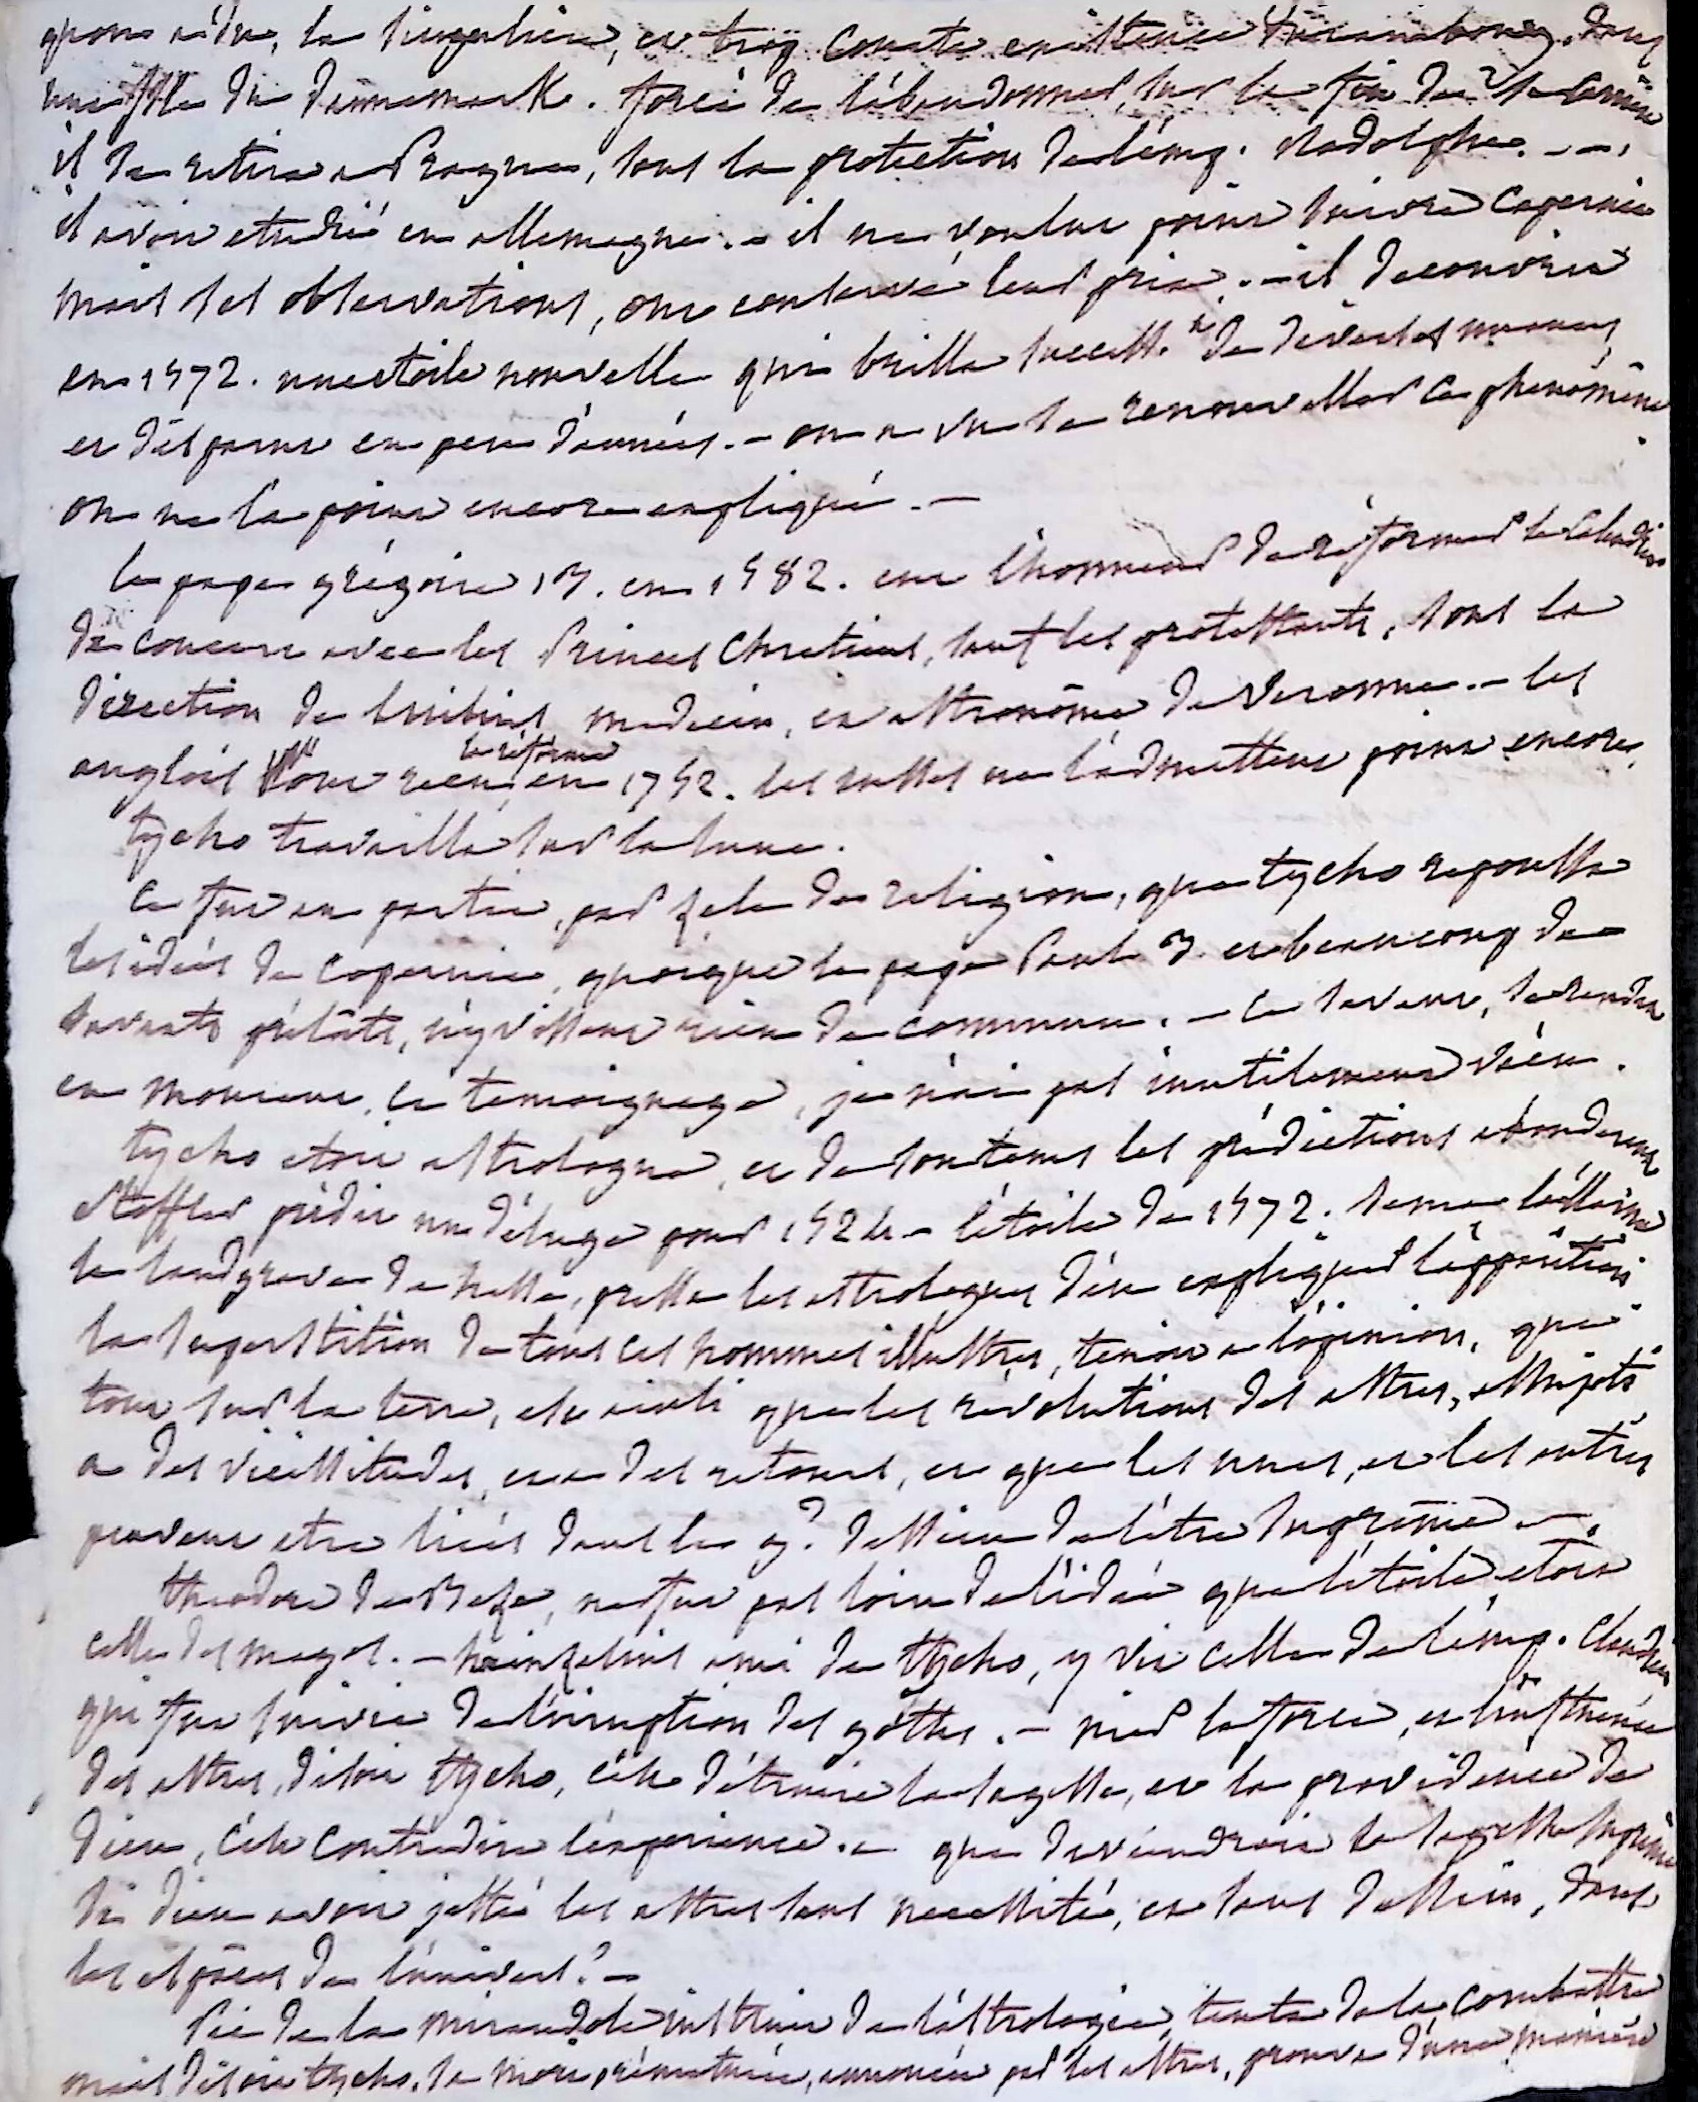 la singulière, et trop courte existence d'uranibourg, dans
une isle du dannemark. forcé de l'abandonner, sur la fin de sa carrière
il se retira a Prague, sous la protection de l'emp. Rodolphe. --.
il avoit etudié en allemagne. - il ne voulut point suivre Copernic
mais ses observations, ont conservé leur prix. - il decouvrit
en 1572. une etoile nouvelle qui brilla success.t de diverses nuances,
et disparut en peu d'années. - on a vu se renouveller ce phenomène
on ne l'a point encore expliqué. -
le pape grégoire 13. en 1582. eut l'honneur de réformer le Calendrier
de concert avec les Princes Chretiens, sauf les protestants, sous la
direction de medecin, et astronôme de Veronne. - les
anglois l'ont recu la réforme en 1752. les russes ne l'admettent point encore.
tycho travailla sur la lune.
ce fut en partie, par zele de religion, que tycho repoussa
les idées de Copernic, quoique le pape Paul 3. et beaucoup de
savants prélats, n'y vissent rien de commun. - ce savant, se rendit
en mourant, ce temoignage, je n'ai pas inutilement vécu.
tycho etoit astrologue, et de son tems les prédictions abonderent
stoffler prédit un déluge pour 1524 - l'étoile de 1572. sema l'allarme
le landgrave de hesse, pressa les astrologues d'en expliquer l'apparition
la superstition de tous ces hommes illustres, tenoit a l'opinion, que
tout sur la terre, est ainsi que les révolutions des astres, assujeti
a des vicissitudes, et a des retours, et que les unes, et les autres
peuvent etre liées dans le g.d dessein de l'être suprême -.
theodore de Beze, ne fut pas loin de l'idée que l'étoile etoit
celle des mages. - hainzelius ami de tycho, y vit celle de l'emp. Claudien
qui fut suivie de l'irruption des goths. - nier la force, et l'influence
des astres, disoit tycho, c'est détruire la sagesse, et la providence de
dieu, c'est contredire l'expérience. - que deviendroit la sagesse suprême
si dieu avoit jetté les astres sans necessité, et sans dessein, dans
les espaces de l'univers? -
Pic de la mirandole instruit de l'astrologie, tenta de la combattre
mais disoit tycho, sa mort prématurée, annoncée par les astres, prouva d'une manière